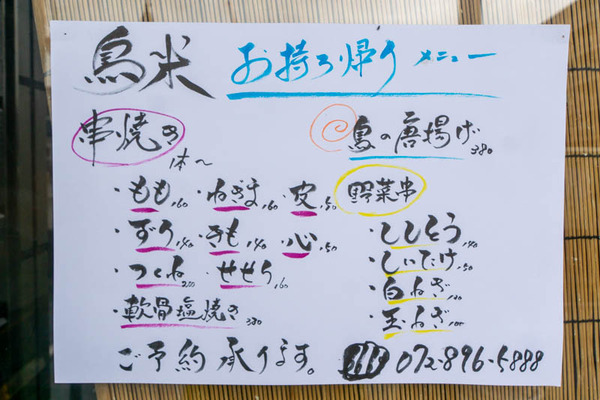 鳥米 お持ち帰り メニュー
串焼き
1本〜
・もも160 ・ねぎま160 ・皮150
・ずり140 ・きも140 ・心150
・つくね200 ・せせり160
・軟骨塩焼き380
鳥の唐揚げ380
野菜串
・ししとう
・しいたけ
・白ねぎ
・玉ねぎ
ご予約承ります。
072-896-5888